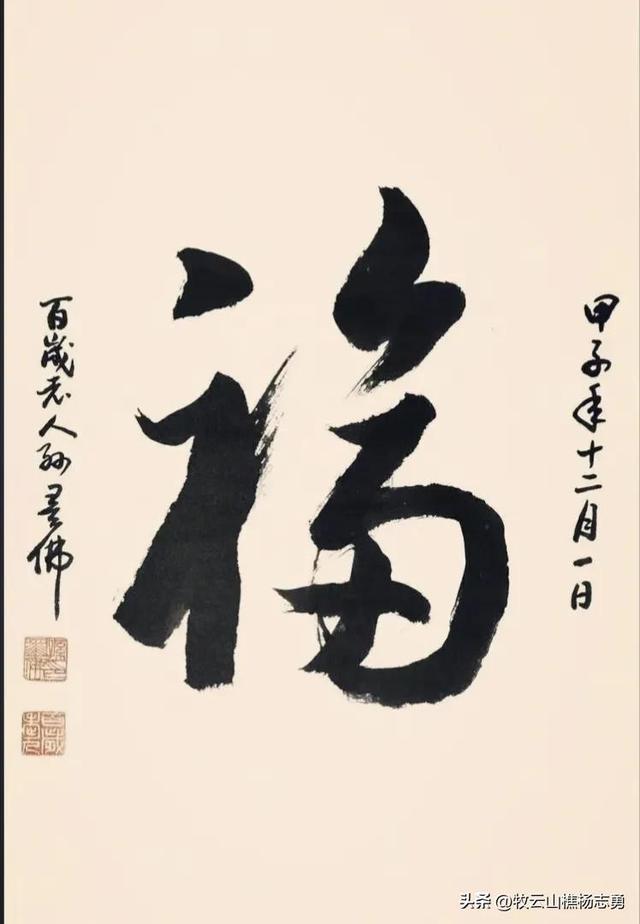 甲子年十二月一日
福
百歲老人孙墨佛
头条 @牧云山樵杨志勇